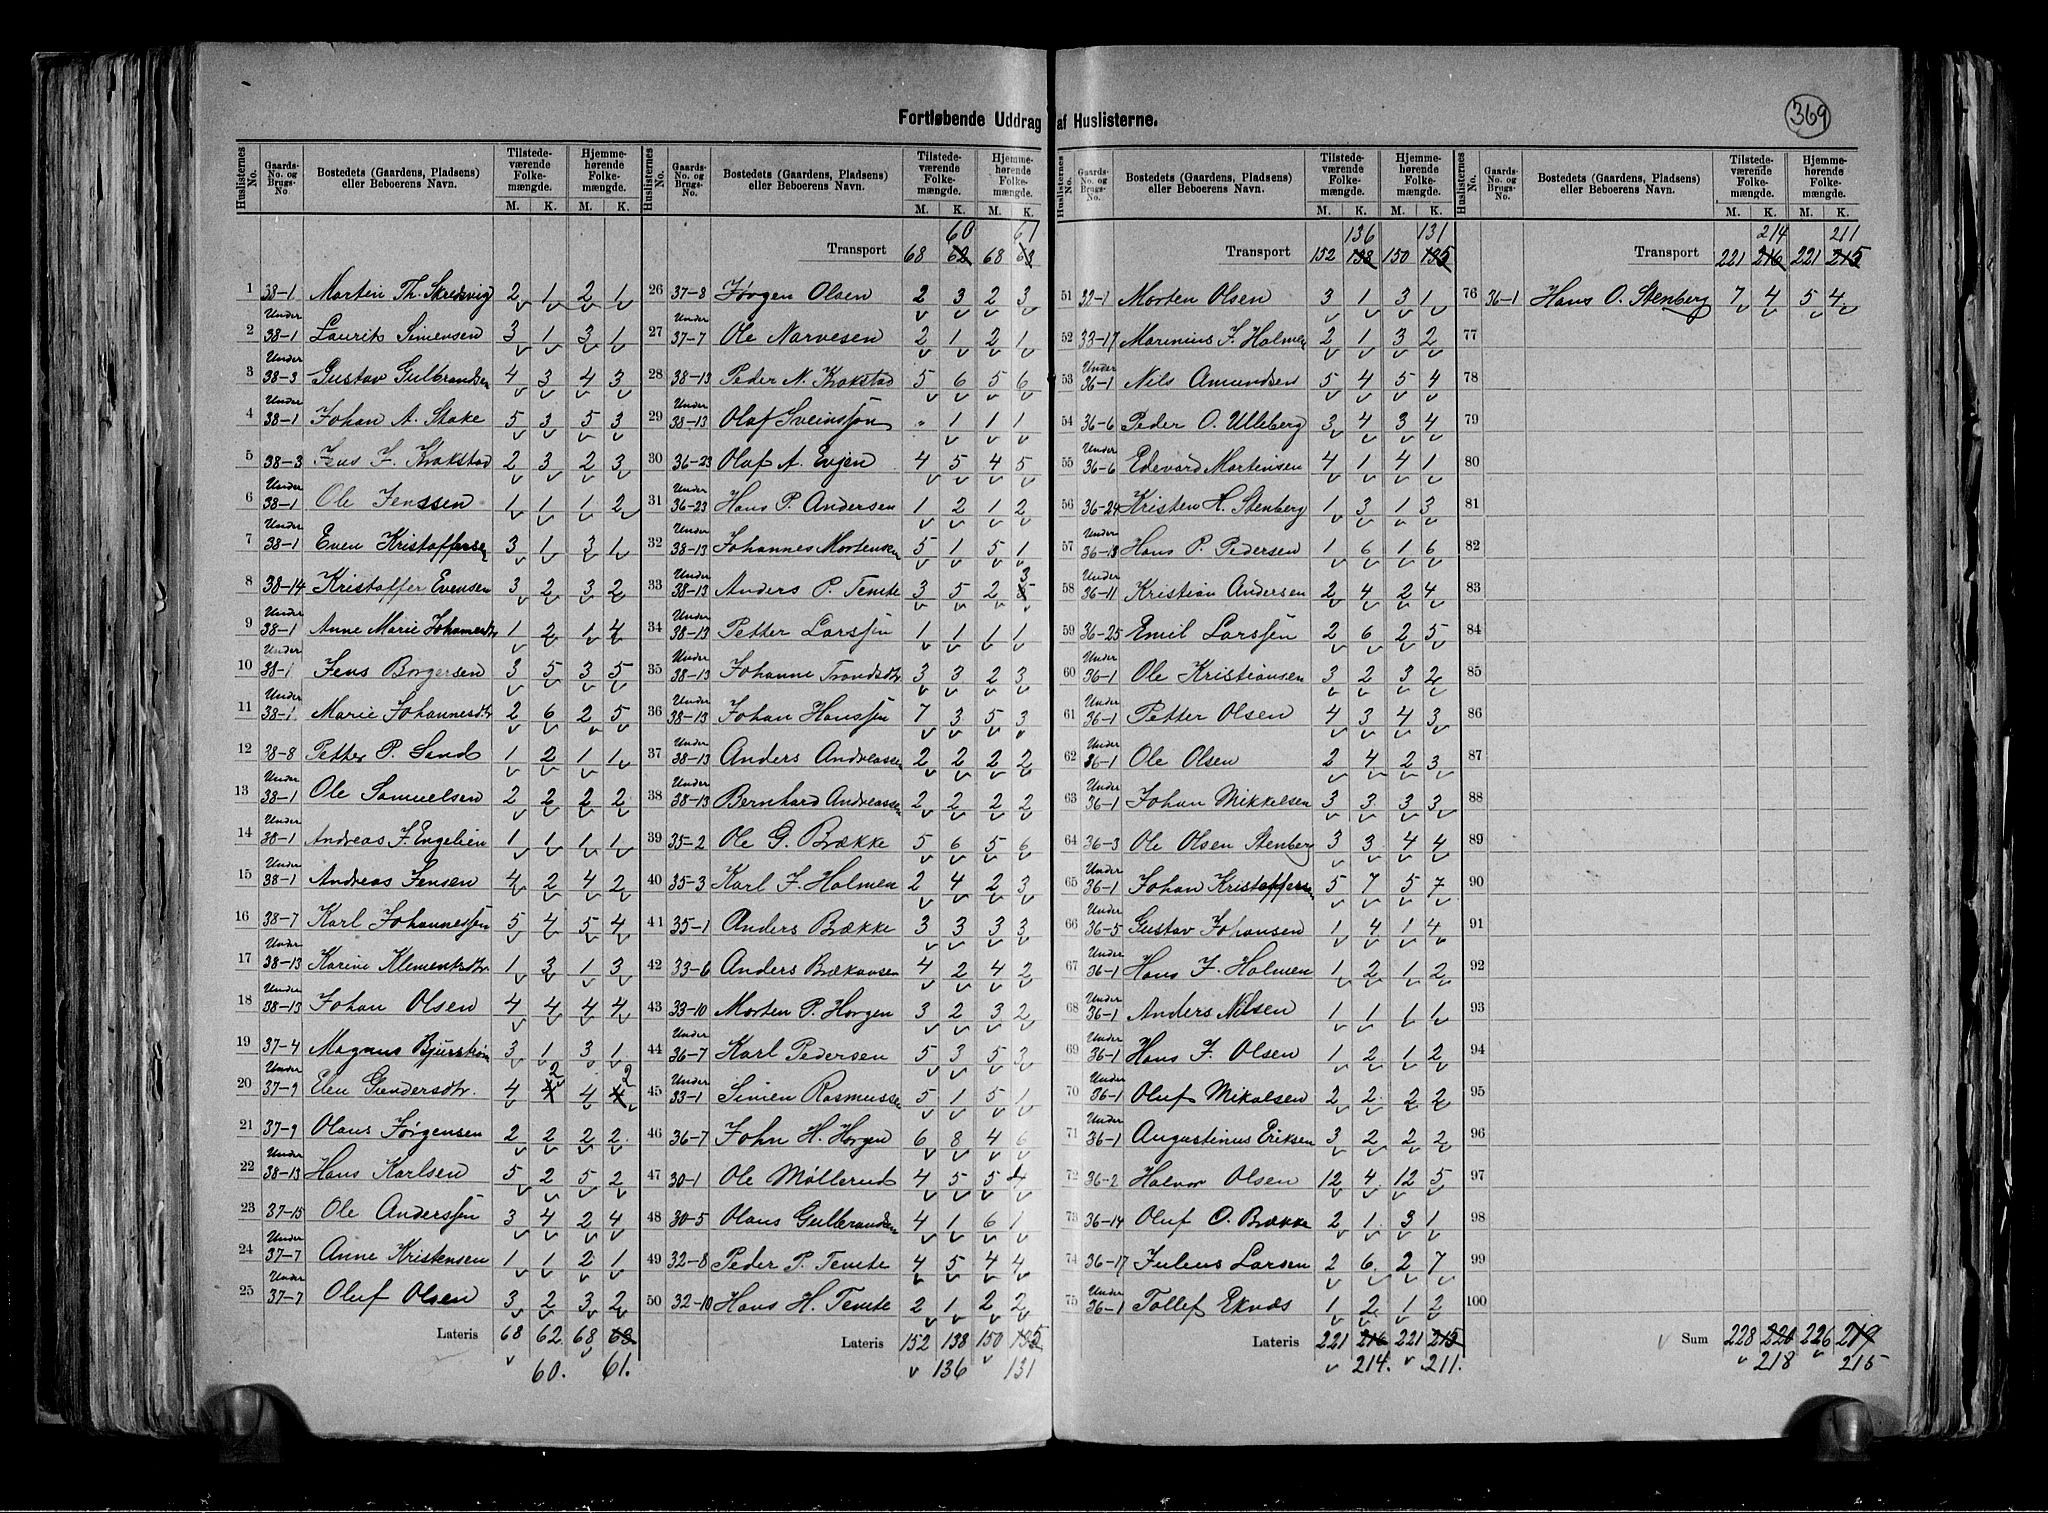 369
Fortløbende Uddrag af Huslisterne.
Huslisternes No. Gaards-No. og Brugs-No. Bostedets (Gaardens, Pladsens) eller Beboerens Navn. Tilstedeværende Folkemængde. M. K. Hjemmehørende Folkemængde. M. K.
1 38-1 Martin Th. Skredsvig 2 1 2 1
2 Under 38-1 Laurits Simensen 3 1 3 1
3 Under 38-3 Gustav Gulbrandsen 4 3 4 3
4 Under 38-1 Johan A. Stake 5 3 5 3
5 38-3 Jens J. Krokstad 2 3 2 3
6 Under 38-1 Ole Jenssen 1 1 1 2
7 Under 38-1 Even Kristoffersen 3 1 3 1
8 38-14 Kristoffer Evensen 3 2 3 2
9 Under 38-1 Anne Marie Johannesdtr 1 2 1 4
10 Under 38-1 Jens Borgersen 3 5 3 5
11 Under 38-1 Marie Johannesdtr 2 6 2 5
12 38-8 Petter P. Sand 1 2 1 1
13 Under 38-1 Ole Samuelsen 2 2 2 2
14 Under 38-1 Andreas J. Engelien 1 1 1 1
15 Under 38-1 Andreas Jensen 4 2 4 2
16 38-7 Karl Johannessen 5 4 5 4
17 Under 38-13 Karine Klementsdtr 1 3 1 3
18 Under 38-13 Johan Olsen 4 4 4 4
19 37-4 Magnus Bjurstrøm 3 1 3 1
20 Under 37-9 Elen Gundersdtr. 4 2 4 2
21 37-9 Olaus Jørgensen 2 2 2 2
22 Under 38-13 Hans Karlsen 5 2 5 2
23 37-15 Ole Anderssen 3 4 2 4
24 Under 37-7 Anne Kristensen 1 1 2 1
25 Under 37-7 Oluf Olsen 3 2 3 2
Lateris 68 62 68 63
60. 61.
Huslisternes No. Gaards-No. og Brugs-No. Bostedets (Gaardens, Pladsens) eller Beboerens Navn. Tilstedeværende Folkemængde. M. K. Hjemmehørende Folkemængde. M. K.
60 61
Transport 68 62 68 63
26 37-8 Jørgen Olsen 2 3 2 3
27 Under 37-7 Ole Narvesen 2 1 2 1
28 38-13 Peder N. Krokstad 5 6 5 6
29 Under 38-13 Olaf Sveinssen " 1 1 1
30 36-23 Olaf A. Evjen 4 5 4 5
31 Under 36-23 Hans P. Andersen 1 2 1 2
32 Under 38-13 Johannes Mortensen 5 1 5 1
33 Under 38-13 Anders P. Temte 3 5 2 3
34 Under 38-13 Petter Larssen 1 1 1 1
35 Under 38-13 Johanne Trondsdtr 3 3 2 3
36 Under 38-13 Johan Hanssen 7 3 5 3
37 Under 38-13 Anders Andreassen 2 2 2 2
38 Under 38-13 Bernhard Andreassen 2 2 2 2
39 35-2 Ole G. Brække 5 6 5 6
40 35-3 Karl J. Holmen 2 4 2 3
41 35-1 Anders Brække 3 3 3 3
42 33-6 Anders Brækaasen 4 2 4 2
43 33-10 Morten P. Horgen 3 2 3 2
44 Under 36-7 Karl Pedersen 5 3 5 3
45 Under 33-1 Simen Rasmussen 5 1 5 1
46 36-7 John H. Horgen 6 8 4 6
47 30-1 Ole Møllerud 4 5 5 4
48 30-5 Olaus Gulbrandsen 4 1 6 1
49 32-8 Peder P. Temte 4 5 4 4
50 32-10 Hans H. Temte 2 1 2 2
Lateris 152 138 150 135
136 131
Huslisternes No. Gaards-No. og Brugs-No. Bostedets (Gaardens, Pladsens) eller Beboerens Navn. Tilstedeværende Folkemængde. M. K. Hjemmehørende Folkemængde. M. K.
136 131
Transport 152 138 150 135
51 32-1 Morten Olsen 3 1 3 1
52 33-17 Marinius J. Holmen 2 1 3 2
53 Under 36-1 Nils Amundsen 5 4 5 4
54 36-6 Peder O. Ulleberg 3 4 3 4
55 Under 36-6 Edevard Mortensen 4 1 4 1
56 36-24 Kristen H. Stenberg 1 3 1 3
57 Under 36-13 Hans P. Pedersen 1 6 1 6
58 Under 36-11 Kristian Andersen 2 4 2 4
59 36-25 Emil Larssen 2 6 2 5
60 Under 36-1 Ole Kristiansen 3 2 3 2
61 Under 36-1 Petter Olsen 4 3 4 3
62 Under 36-1 Ole Olsen 2 4 2 3
63 Under 36-1 Johan Mikkelsen 3 3 3 3
64 36-3 Ole Olsen Stenberg 3 3 4 4
65 Under 36-1 Johan Kristoffersen 5 7 5 7
66 Under 36-5 Gustav Johansen 1 4 1 4
67 Under 36-1 Hans J. Holmen 1 2 1 2
68 Under 36-1 Anders Nilsen 1 1 1 1
69 Under 36-1 Hans J. Olsen 1 2 1 2
70 Under 36-1 Oluf Mikalsen 2 2 2 2
71 Under 36-1 Augustinus Eriksen 3 2 2 2
72 36-2 Halvor Olsen 12 4 12 5
73 36-14 Oluf O. Brække 2 1 3 1
74 36-17 Julius Larsen 2 6 2 7
75 Under 36-1 Tollef Eknæs 1 2 1 2
Lateris 221 216 221 215
214. 211.
Huslisternes No. Gaards-No. og Brugs-No. Bostedets (Gaardens, Pladsens) eller Beboerens Navn. Tilstedeværende Folkemængde. M. K. Hjemmehørende Folkemængde. M. K.
214 211
Transport 221 216 221 215
76 36-1 Hans O. Stenberg 7 4 5 4
77
78
79
80
81
82
83
84
85
86
87
88
89
90
91
92
93
94
95
96
97
98
99
100
Sum 228 220 226 219
218 215